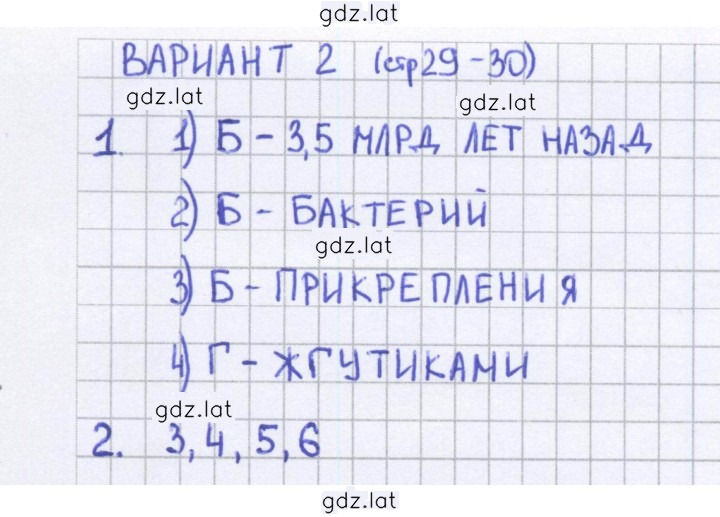 gdz.lat
ВАРИАНТ 2 (стр 29-30)
gdz.lat
gdz.lat
1. 1) Б - 3,5 МЛРД ЛЕТ НАЗАД
2) Б - БАКТЕРИЙ
gdz.lat
3) Б - ПРИКРЕПЛЕНИЯ
4) Г - ЖГУТИКАМИ
gdz.lat
2. 3, 4, 5, 6
gdz.lat